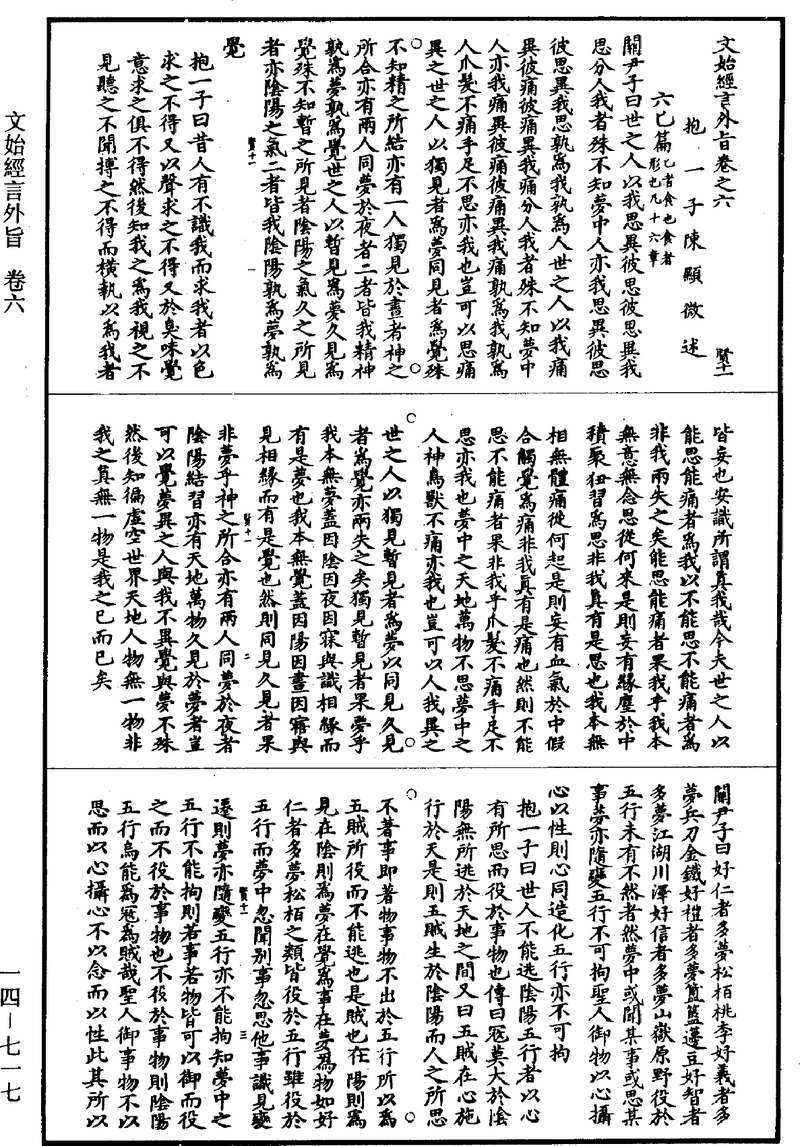 文始經言外旨卷之六
賢十一
抱一子陳顯微述
六匕篇
匕者食也食者
形也凡十六章
關尹子曰世之人以我思異彼思彼思異我
思分人我者殊不知夢中人亦我思異彼思
彼思異我思孰為我孰為人世之人以我痛
異彼痛彼痛異我痛分人我者殊不知夢中
人亦我痛異彼痛彼痛異我痛孰為我孰為
人爪髮不痛手足不思亦我也豈可以思痛
異之世之人以獨見者為夢同見者為覺殊
不知精之所結亦有一人獨見於晝者神之
所合亦有兩人同夢於夜者二者皆我精神
孰為夢孰為覺世之人以暫見為夢久見為
覺殊不知暫之所見者陰陽之氣久之所見
者亦陰陽之氣二者皆我陰陽孰為夢孰為
覺
抱一子曰昔人有不識我而求我者以色
求之不得又以聲求之不得又於臭味覺
意求之俱不得然後知我之為我視之不
見聽之不聞搏之不得而橫執以為我者
皆妄也安識所謂真我哉今夫世之人以
能思能痛者為我以不能思不能痛者為
非我兩失之矣能思能痛者果我乎我本
無意無念思從何來是則妄有緣塵於中
積聚狃習為思非我真有是思也我本無
相無體痛從何起是則妄有血氣於中假
合觸覺為痛非我真有是痛也然則不能
思不能痛者果非我乎爪髮不痛手足不
思亦我也夢中之天地萬物不思夢中之
人神鳥獸不痛亦我也豈可以人我異之
世之人以獨見暫見者為夢以同見久見
者為覺亦兩失之矣獨見暫見者果夢乎
我本無夢蓋因陰因夜因寐與識相緣而
有是夢也我本無覺蓋因陽因晝因寤與
見相緣而有是覺也然則同見久見者果
賢十一
二
非夢乎神之所合亦有兩人同夢於夜者
陰陽結習亦有天地萬物久見於夢者豈
可以覺夢異之人與我不異覺與夢不殊
然後知徧虛空世界天地人物無一物非
我之真無一物是我之己而已矣
關尹子曰好仁者多夢松栢桃李好義者多
夢兵刀金鐵好禮者多夢簠簋籩豆好智者
多夢江湖川澤好信者多夢山嶽原野役於
五行未有不然者然夢中或聞某事或思某
事夢亦隨變五行不可拘聖人御物以心攝
心以性則心同造化五行亦不可拘
抱一子曰世人不能逃陰陽五行者以心
有所思而役於事物也傳曰寇莫大於陰
陽無所逃於天地之間又曰五賊在心施
行於天是則五賊生於陰陽而人之所思
不著事即著物事物不出於五行所以為
五賊所役而不能逃也是賊也在陽則為
見在陰則為夢在覺為事在夢為物如好
仁者多夢松栢之類皆役於五行雖役於
五行而夢中忽聞別事忽思他事識見變
賢十一
三
遷則夢亦隨變五行亦不能拘知夢中之
五行不能拘則若事若物皆可以御而役
之而不役於事物也不役於事物則陰陽
五行烏能為寇為賊哉聖人御事物不以
思而以心攝心不以念而以性此其所以
文始經言外旨 卷六
一四—七一七